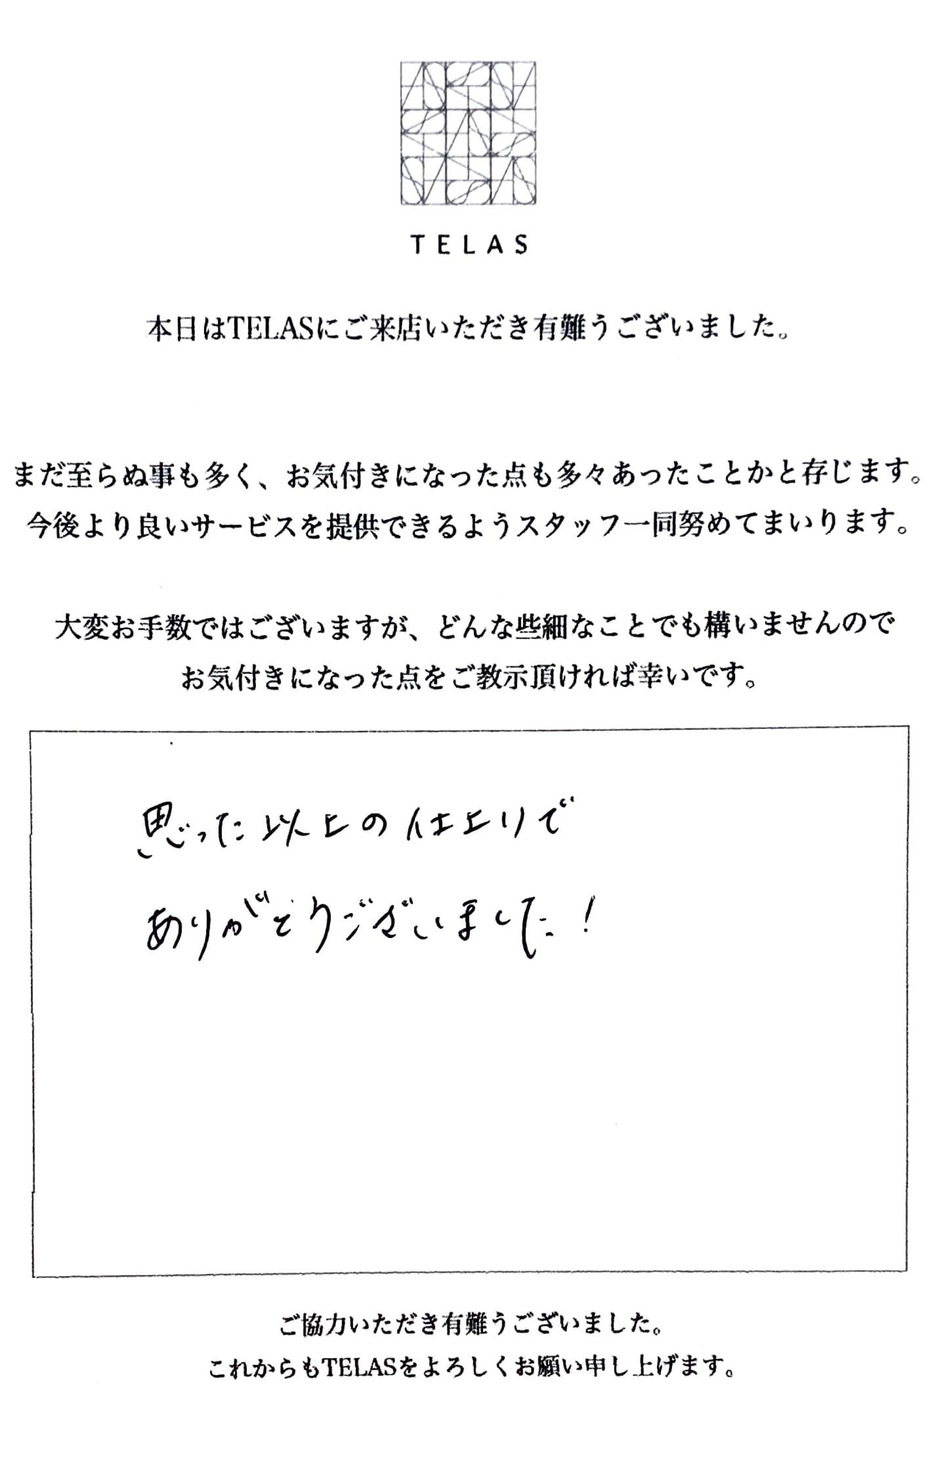 TELAS
本日はTELASにご来店いただき有難うございました。
まだ至らぬ事も多く、お気付きになった点も多々あったことかと存じます。
今後より良いサービスを提供できるようスタッフ一同努めてまいります。
大変お手数ではございますが、どんな些細なことでも構いませんので
お気付きになった点をご教示頂ければ幸いです。
思った以上の仕上りで
ありがとうございました!
ご協力いただき有難うございました。
これからもTELASをよろしくお願い申し上げます。